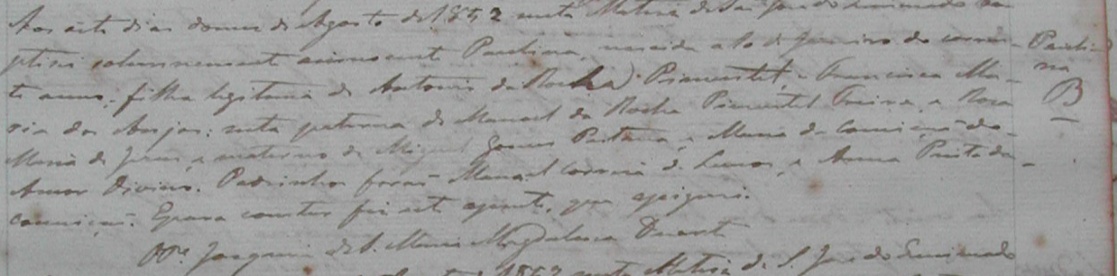 Aos oito dias do mes de Agosto de 1852 nesta Matriz de São Jose do
ptisei solemnemente a innocente Paulina, nascida a 10 de Janeiro do corren-
te anno; filha legitima de Antonio da Rocha Pimentel, e Francisca Ma-
ria dos Anjos; neta paterna de Manoel da Rocha Pimentel e Rosa
Maria de Jesus, e materna de Miguel Gomes e Maria da Conceição do
Amor Divino. Padrinhos forão Manoel Correia de Lemos, e Anna Pinto da
Conceição. E para constar fiz este assento, que assignei.
Joaquim de S. Maria Magdalena Duarte
1852 nesta Matriz de S. Jose do
Pauli-
na
B